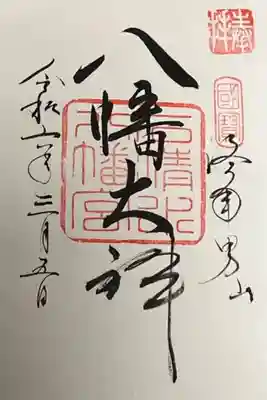 奉拝
國寶
男山
八幡大神
石清水
八幡宮
令和 年三月五日